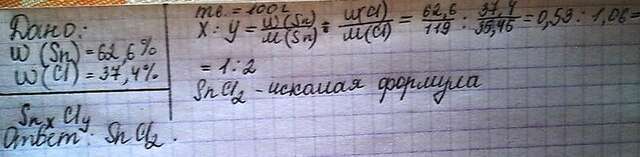 Дано:
W (Sn) = 62,6%
W(Cl) = 37,4%
SnxCly
Ответ: SnCl2.
mв. = 100г
x : y = W(Sn)/M(Sn) : W(Cl)/M(Cl) = 62,6/119 : 37,4/35,45 = 0,53 : 1,06 =
= 1:2
SnCl2 - искомая формула